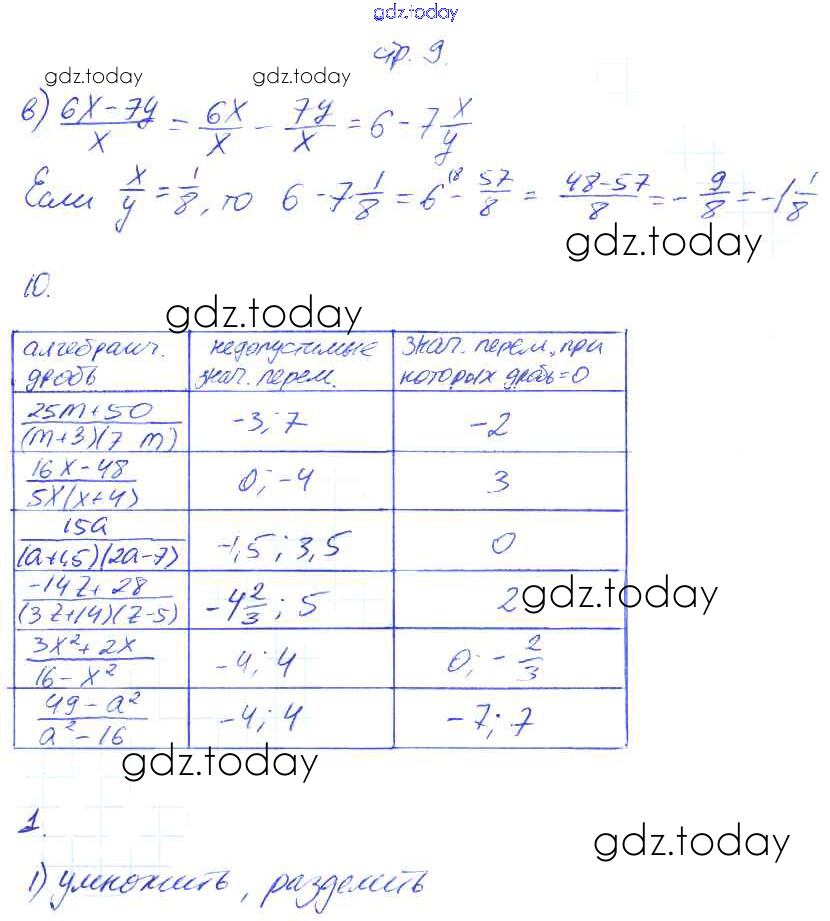 gdz.today
стр. 9.
gdz.today gdz.today
в) (6x-7y)/x = 6x/x - 7y/x = 6 - 7 x/y
Если x/y = 1/8, то 6 - 7 1/8 = 6 (8 - 57/8 = (48-57)/8 = - 9/8 = -1 1/8
gdz.today
10.
gdz.today
алгебраич. дробь | недопустимые знач. перем. | знач. перем., при которых дробь=0
(25m+50)/((m+3)(7 m)) | -3; 7 | -2
(16x-48)/(5x(x+4)) | 0; -4 | 3
15a/((a+1,5)(2a-7)) | -1,5; 3,5 | 0
(-14z+28)/((3z+14)(z-5)) | -4 2/3; 5 | 2
gdz.today
(3x²+2x)/(16-x²) | -4; 4 | 0; - 2/3
(49-a²)/(a²-16) | -4; 4 | -7; 7
gdz.today
1.
gdz.today
1) умножить, разделить